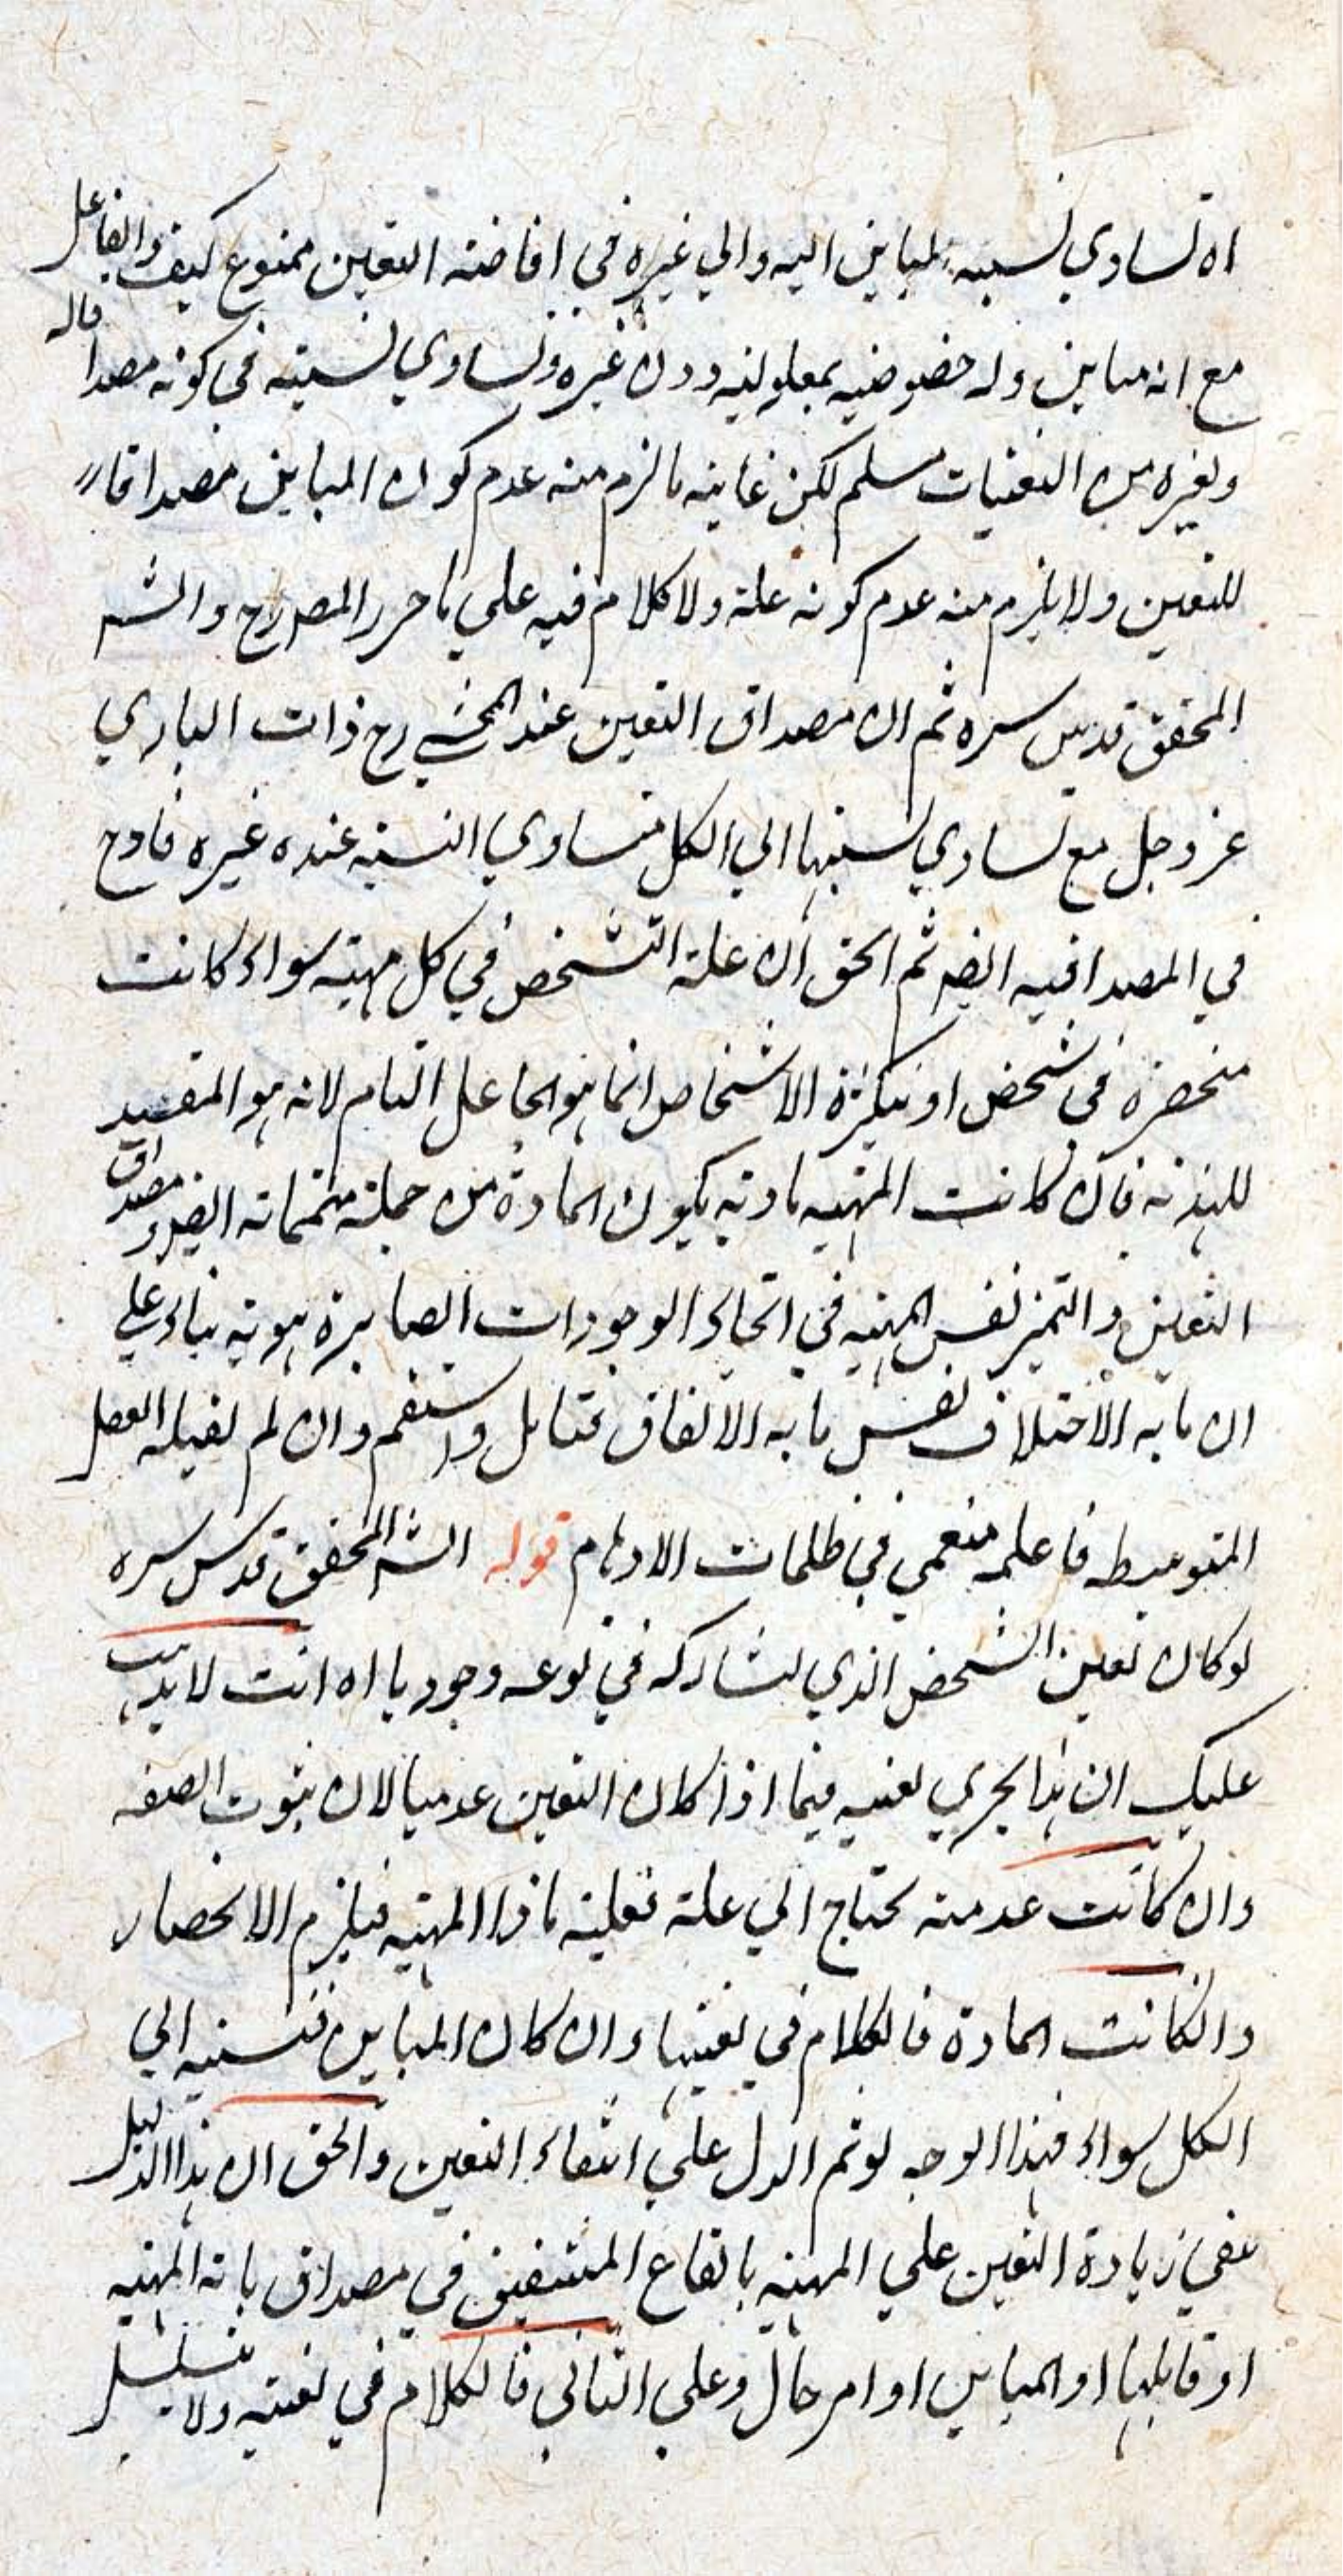 اه تساوي نسبة المباين اليه والي غيره في افاضته التعين ممنوع كيف والفاعل
مع انه مباين وله خصوصية بمعلوليه دون غيره وتساوي نسبته في كونه مصداقا له
ولغيره من التعنيات مسلم لكن غاية ما لزم منه عدم كون المباين مصداقا
للتعين ولا يلزم منه عدم كونه علة ولا كلام فيه علي ما حرر المصر رح والشر
المحقق قدس سره ثم ان مصداق التعين عند المحشي رح ذات الباري
عز وجل مع تساوي نسبتها الي الكل فتساوي النسبة عنده غير قادح
في المصداقيه ايضر ثم الحق ان علة التشخص في كل مهية سواء كانت
منحصرة في شخص او متكثرة الاشخاص انما هو الجاعل التام لانه هو المفيد
للهذية فان كانت المهية مادية يكون المادة من جملة متمماته ايضر ومصداق
التعين والتميز نفس المهية في انحاء الوجودات الصايرة هوية بناء علي
ان ما به الاختلاف نفس ما به الاتفاق فتامل واستقم وان لم يقبله العقل
المتوسط فاعلمه منغمس في ظلمات الاوهام قوله الشر المحقق قدس سره
لو كان تعين الشخص الذي يشاركه في نوعه وجوديا اه انت لا يذهب
عليك ان هذا يجري بعينه فيما اذا كان التعين عدميا لان ثبوت الصفه
وان كانت عدمية تحتاج الي علة فعلية فاذا المهية فيلزم الانحصار
وانكانت المادة فالكلام في تعينها وان كان المباين فنسبته الي
الكل سواء فهذا الوجه لو تم الدل علي انتفاء التعين والحق ان هذا الدليل
ينفي زيادة التعين علي المهية باتقاع المتشفيق في مصداق بانه المهية
او قابلها او المباين او امر حال وعلي الثاني فالكلام في تعينه ولا يتسلسل